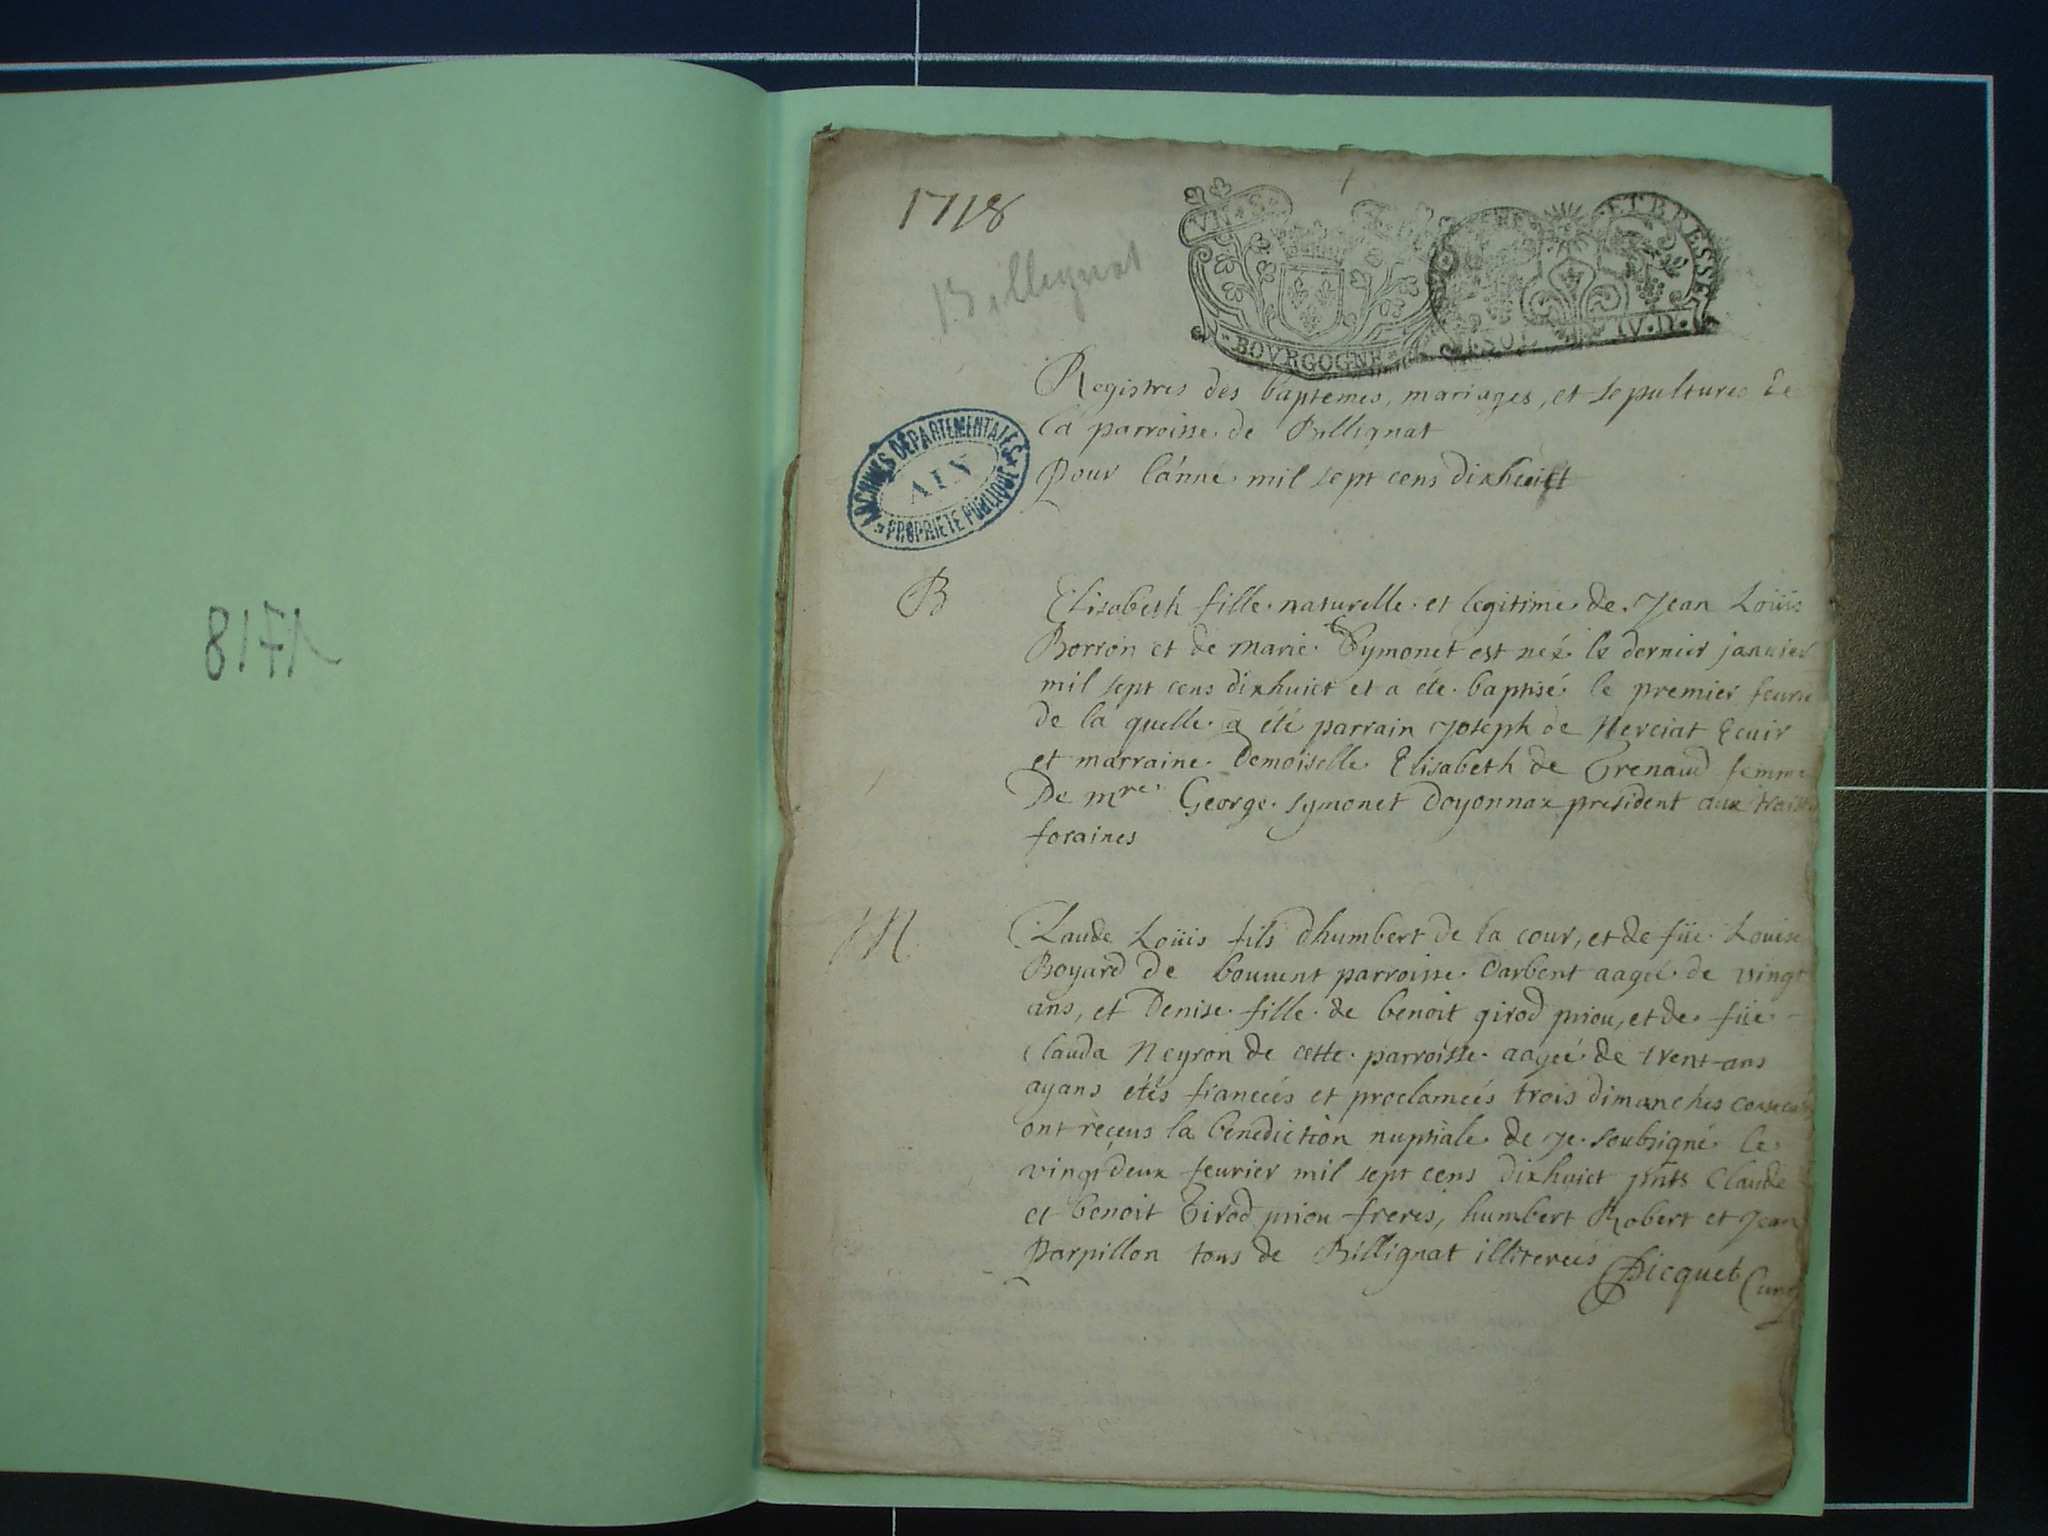 8171
1718
Billignat
BOVRGOGNE
ET BRESSE
IV.D.
Registres des baptemes, mariages, et sepultures de
la parroisse de Billignat
Pour lánné mil sept cens dixhuict
ARCHIVES DÉPARTEMENTALES
AIN
PROPRIÉTÉ PUBLIQUE
B
Elisabeth fille naturelle et legitime de Jean Loüis
Borron et de marie Symonet est néé le dernier januier
mil sept cens dixhuict et a éte baptisé le premier feurie
de la quelle a été parrain Joseph de Merciat Ecuir
et marraine Demoiselle Elisabeth de Grenaud femme
De mre George symonet doyonnax president aux traittes
foraines
M
Claude Loüis fils dhumbert de la cour, et de füe Louise
Boyard de bouuent parroisse darbent aagéé de vingt
ans, et Denise fille de benoit girod priou, et de füe
clauda Neyron de cette parroisse aagéé de trent ans
ayans étés fiancéés et proclaméés trois dimanches
ont reçeus la benediction nuptiale de Je soubsigné le
vingt deux feurier mil sept cens dixhuict pnts Claude
et benoit Girod priou freres, humbert Robert et Jean
Parpillon tous de Billignat illiteréés
Picquet Curé